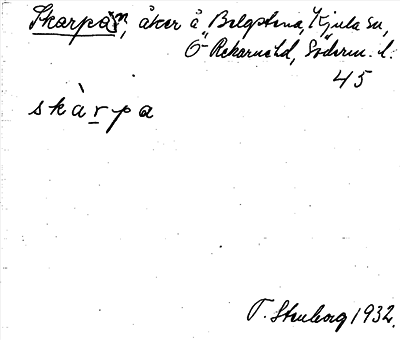 Skarpån, åker å Bolgstena, Kjula sn,
Ö Rekarne hd, Söderm. l.
45
skàrpa
T. Stenborg 1932.